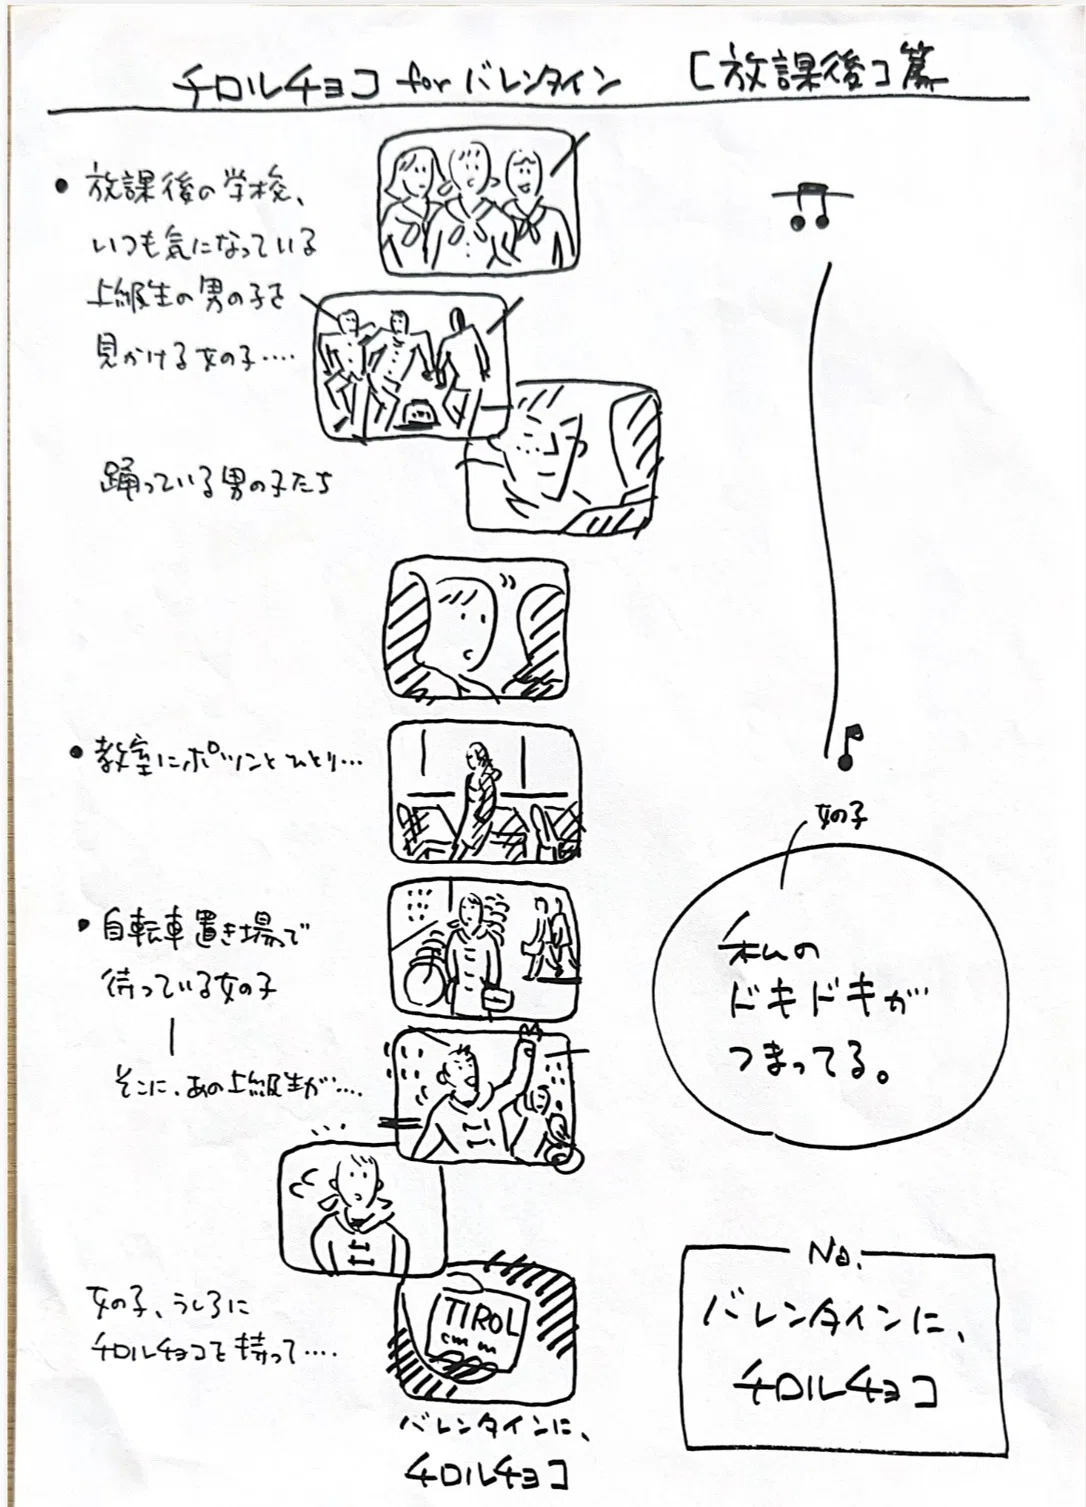 チロルチョコ for バレンタイン 「放課後」篇
• 放課後の学校、
いつも気になっている
上級生の男の子を
見かける女の子‥‥
踊っている男の子たち
• 教室にポツンとひとり…
• 自転車置き場で
待っている女の子
そこに、あの上級生が‥‥
女の子、うしろに
チロルチョコを持って‥‥
TIROL
バレンタインに、
チロルチョコ
女の子
私の
ドキドキが
つまってる。
Na.
バレンタインに、
チロルチョコ